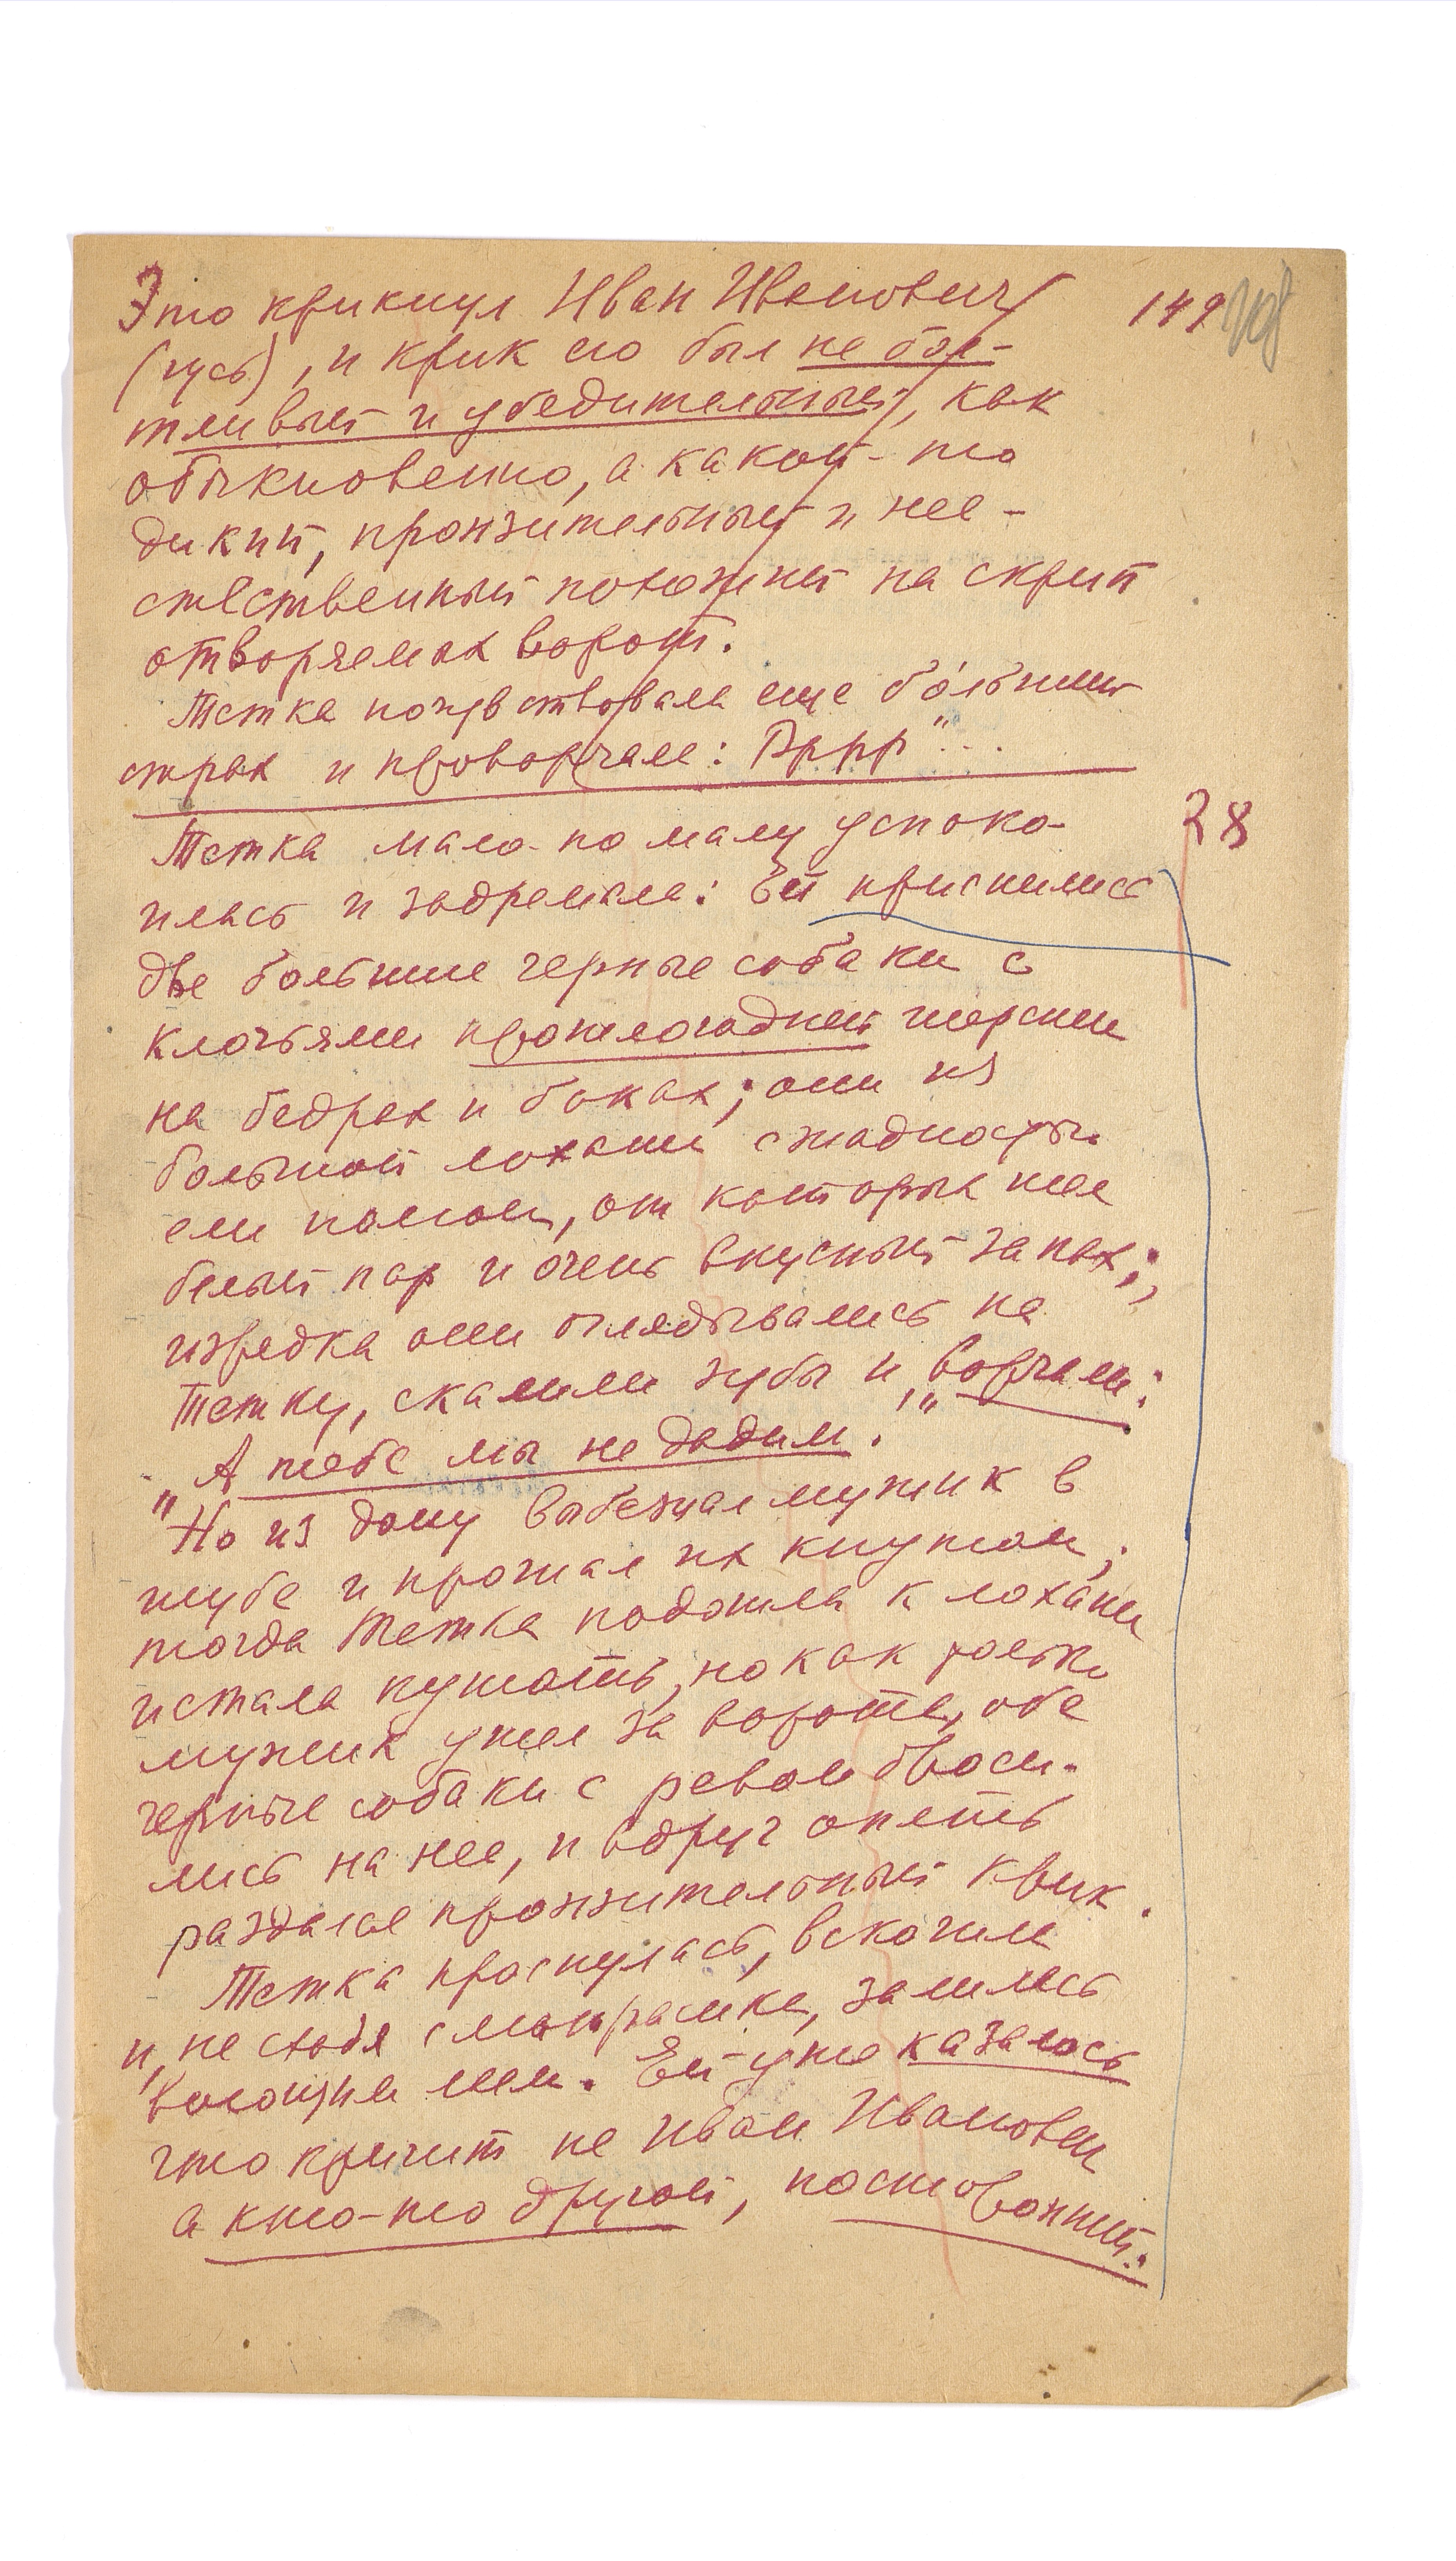 Это крикнул Иван Иванович 149 108
(гусь), и крик его был не бол-
тливый и убедительный, как
обыкновенно, а какой-то
дикий, пронзительный и нее-
стественный похожий на скрип
отворяемых ворот.
Тетка почувствовала еще бо́льший
страх и проворчала: Рррр"...
Тетка мало-по малу успоко- 28
илась и задремала: Ей приснились
две большие черные собаки с
клочьями прошлогодней шерсти
на бедрах и боках; они из
большой лохани с жадностью
ели помои, от которых шел
белый пар и очень вкусный запах;
изредка они оглядывались на
Тетку, скалили зубы и ворчали:
"А тебе мы не дадим!"
Но из дому выбежал мужик в
шубе и прогнал их кнутом;
тогда Тетка подошла к лохани
и стала кушать, но как только
мужик ушел за ворота, обе
черные собаки с ревом броси-
лись на нее, и вдруг опять
раздался пронзительный крик.
Тетка проснулась, вскочила
и, не сходя с матрасика, залилась
воющим лаем. Ей уже казалось
что кричит не Иван Иванович
а кто-то другой, посторонний.